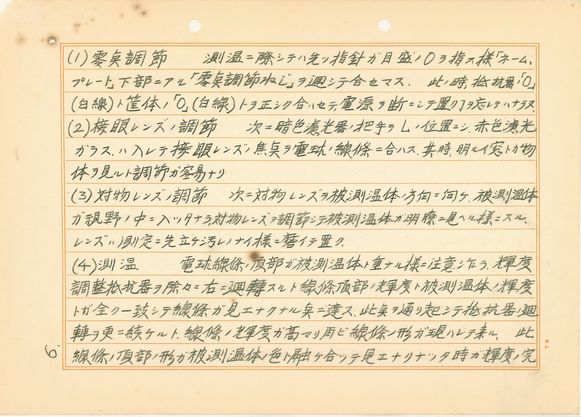 (1) 零点調節　測温ニ際シテハ先ヅ指針ガ目盛ノ0ヲ指ス様「ネーム、
プレート」下部ニアル「零点調節ねじ」ヲ廻シテ合セマス。此ノ時、抵抗器ノ「0」
(白線)ト筐体ノ「0」(白線)トヲ正シク合ハセテ電源ヲ断ニシテ置クヲ忘レテハナラヌ
(2) 接眼レンズノ調節　次ニ暗色濾光器ノ把手ヲLノ位置ニシ、赤色濾光
ガラスハ入レテ接眼レンズノ焦点ヲ電球ノ線條ニ合ハス、其時、明ルイ窓トカ物
体ヲ見ルト調節ガ容易ナリ
(3) 対物レンズノ調節　次ニ対物レンズヲ被測温体ノ方向ニ向ケ、被測温体
ガ視野ノ中ニ入ッタナラ対物レンズヲ調節シテ被測温体ガ明瞭ニ見ヘル様ニスル、
レンズハ測定ニ先立ケ汚レノナイ様ニ置ク。
(4) 測温　電球線條ノ頂部ガ被測温体ト重ナル様ニ注意シナラ、輝度
調整抵抗器ヲ除々ニ右ニ廻轉スルト線條頂部ノ輝度ト被測温体ノ輝度
トガ全ク一致シテ線條ガ見エナクナル点ニ達ス、此点ヲ通リ起シテ抵抗器ノ廻
轉ヲ更ニ続ケルト、線條ノ輝度ガ高マリ再ビ線條ノ形ガ現ハレテ来ル、此
線條ノ頂部ノ形ガ被測温体ノ色ト融ケ合ッテ見エナクナッタ時ガ輝度ノ完
6.